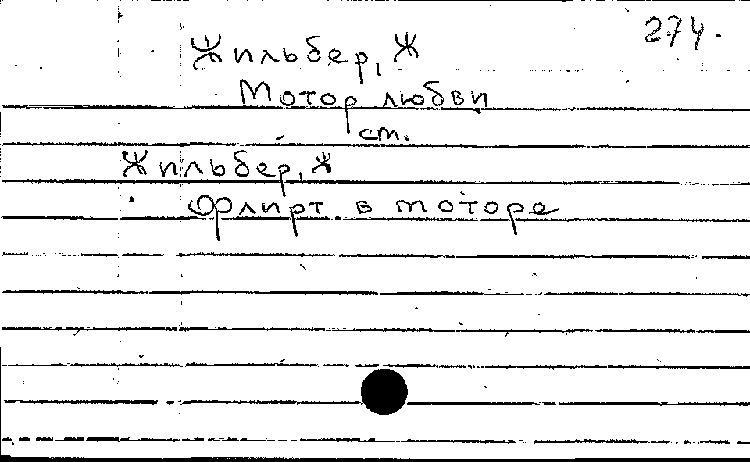 274.
Жильбер, Ж
Мотор любви
ст.
Жильбер, Ж
Флирт в моторе